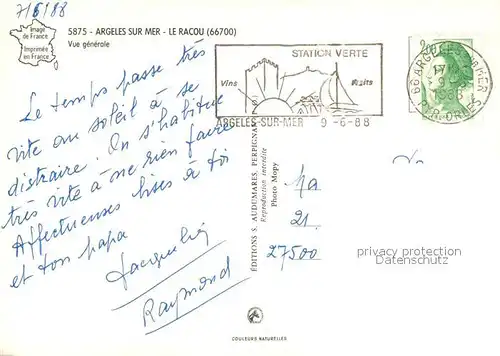 7/6/88
Image
de France
Imprimée
en France
5875 - ARGELES SUR MER - LE RACOU (66700)
Vue générale
Le temps passe très
vite au soleil à se
distraire. On s'habitue
très vite à ne rien faire
Affectueuses bises à toi
et ton papa
Jacqueline
Raymond
STATION VERTE
Vins
Fruits
ARGELES-SUR-MER 9-6-88
2,00
66 ARGELES SUR MER
PYR.-ORLES
ÉDITIONS S. AUDUMARES, PERPIGNAN
Reproduction interdite
Photo Mopy
21
27500
privacy protection
Datenschutz
COULEURS NATURELLES